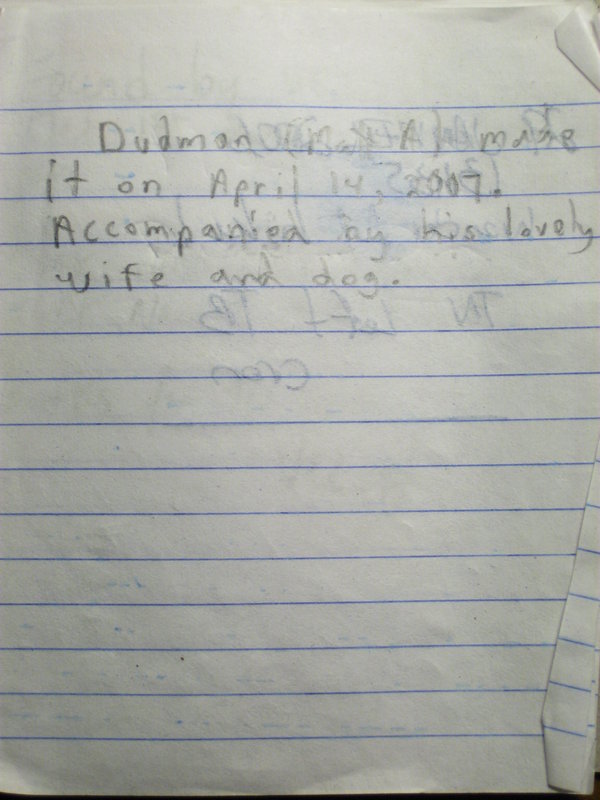 Dudman in AL made
it on April 14, 2007.
Accompanied by his lovely
wife and dog.